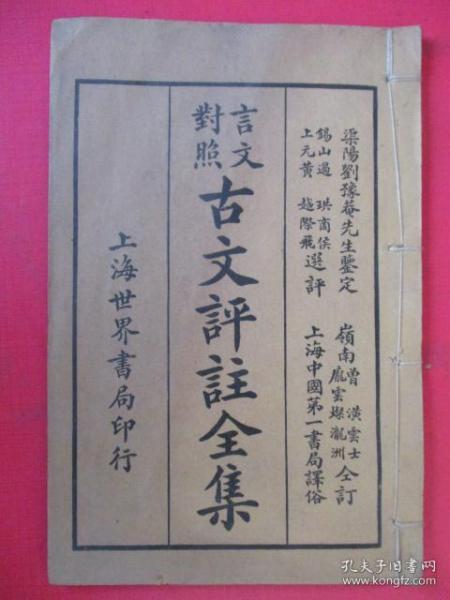 渠陽劉豫菴先生鑒定
錫山過 珙商侯
上元黃 越際飛選評
嶺南曾 潢雲士
龐雲燦瀧洲仝訂
上海中國第一書局譯俗
言文
對照
古文評註全集
上海世界書局印行
孔夫子旧书网
www.kongfz.com